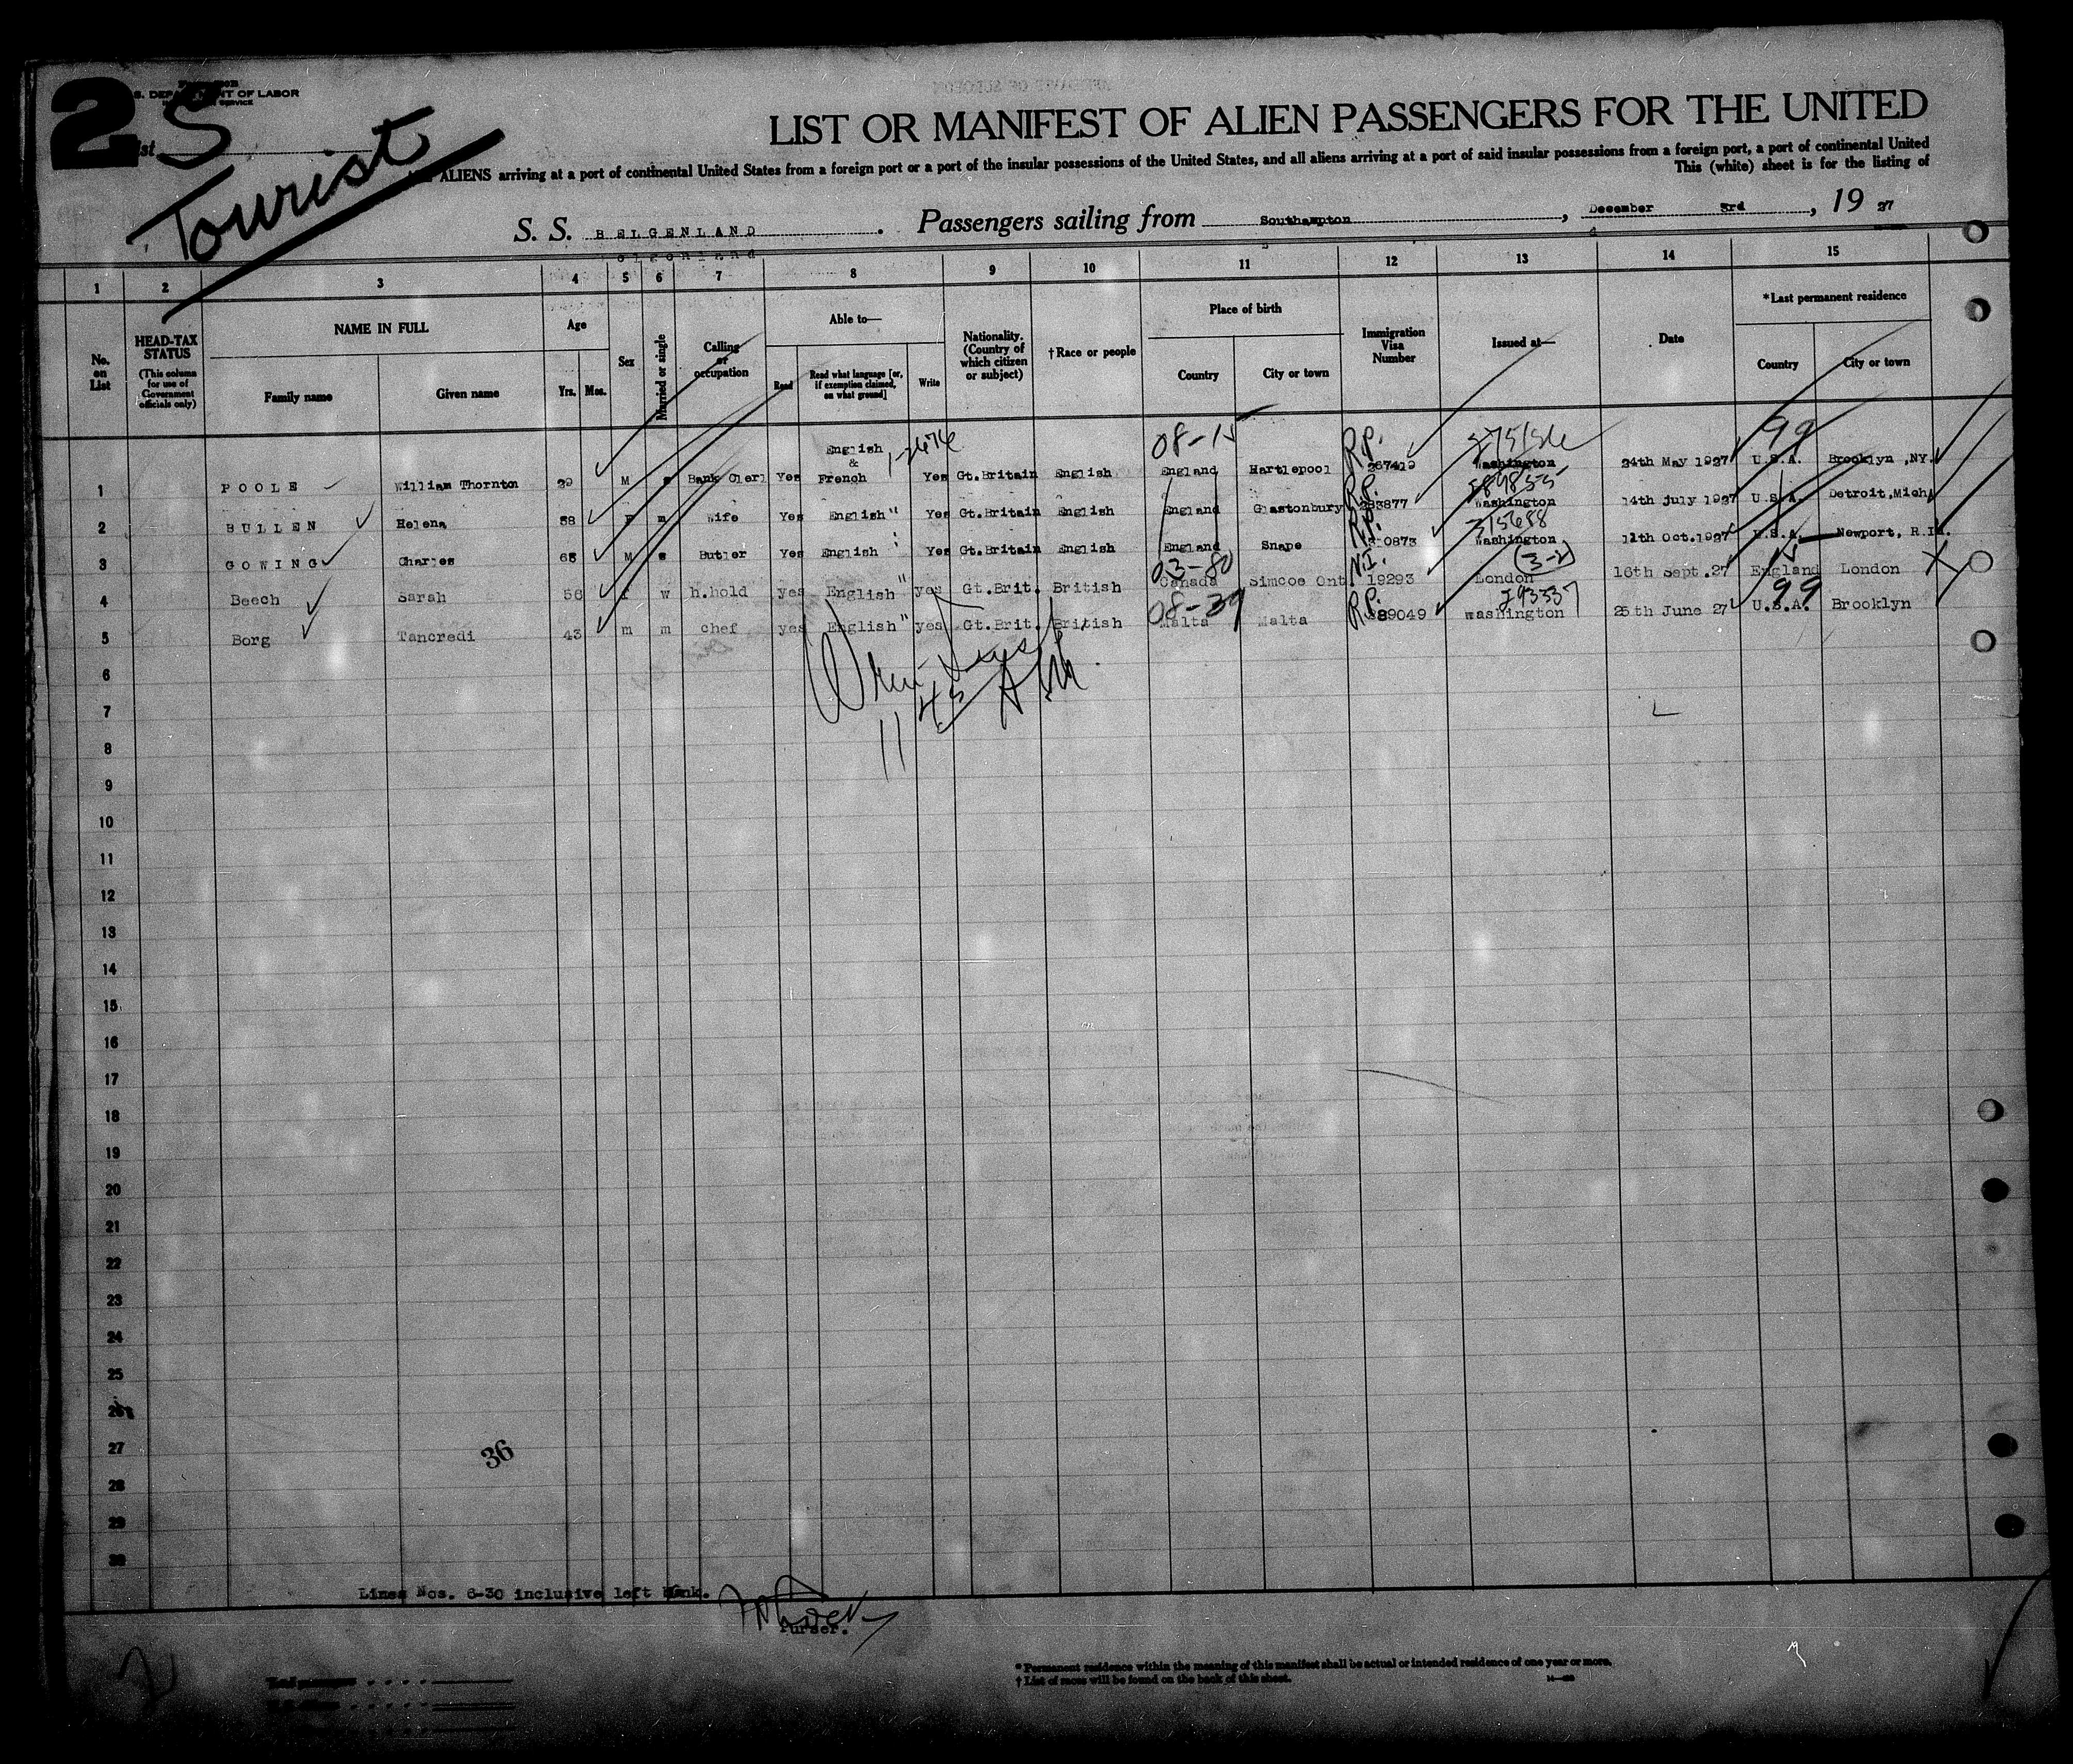 2
S. DEPARTMENT OF LABOR
S
Tourist
LIST OR MANIFEST OF ALIEN PASSENGERS FOR THE UNITED
ALIENS arriving at a port of continental United States from a foreign port or a port of the insular possessions of the United States, and all aliens arriving at a port of said insular possessions from a foreign port, a port of continental United
This (white) sheet is for the listing of
S. S. BELGENLAND. Passengers sailing from Southampton, December 3rd, 19 27
1 2 3 4 5 6 7 8 9 10 11 12 13 14 15
No. on List
HEAD-TAX STATUS (This column for use of Government officials only)
NAME IN FULL Family name Given name
Age Yrs. Mos.
Sex
Married or single
Calling or occupation
Able to— Read Read what language [or, if exemption claimed, on what ground] Write
Nationality. (Country of which citizen or subject)
†Race or people
Place of birth Country City or town
Immigration Visa Number
Issued at—
Date
*Last permanent residence Country City or town
1 POOLE William Thornton M Bank Clerk Yes English & French Yes Gt.Britain English 08-15 England Hartlepool R.P. 267419 Washington 24th May 1927 99 U.S.A. Brooklyn, NY.
2 BULLEN Helena m Wife Yes English " Yes Gt.Britain English England Glastonbury R.P. Washington 14th July 1927 U.S.A. Detroit,Mich
3 GOWING Charles M Butler Yes English Yes Gt.Britain English England Snape Washington 11th Oct.1927 U.S.A. Newport, R.I.
4 Beech Sarah w h.hold yes English " yes Gt.Brit. British 03-80 Canada Simcoe Ont N.I. 19293 London (3-2) 16th Sept.27 England London
5 Borg Tancredi 43 m m chef yes English " yes Gt.Brit. British 08-39 Malta Malta R.P. 289049 washington 25th June 27 99 U.S.A. Brooklyn
6
7
8
9
10
11
12
13
14
15
16
17
18
19
20
21
22
23
24
25
26
27
28
29
30
36
Lines Nos. 6-30 inclusive left blank.
Purser.
* Permanent residence within the meaning of this manifest shall be actual or intended residence of one year or more.
† List of races will be found on the back of this sheet.